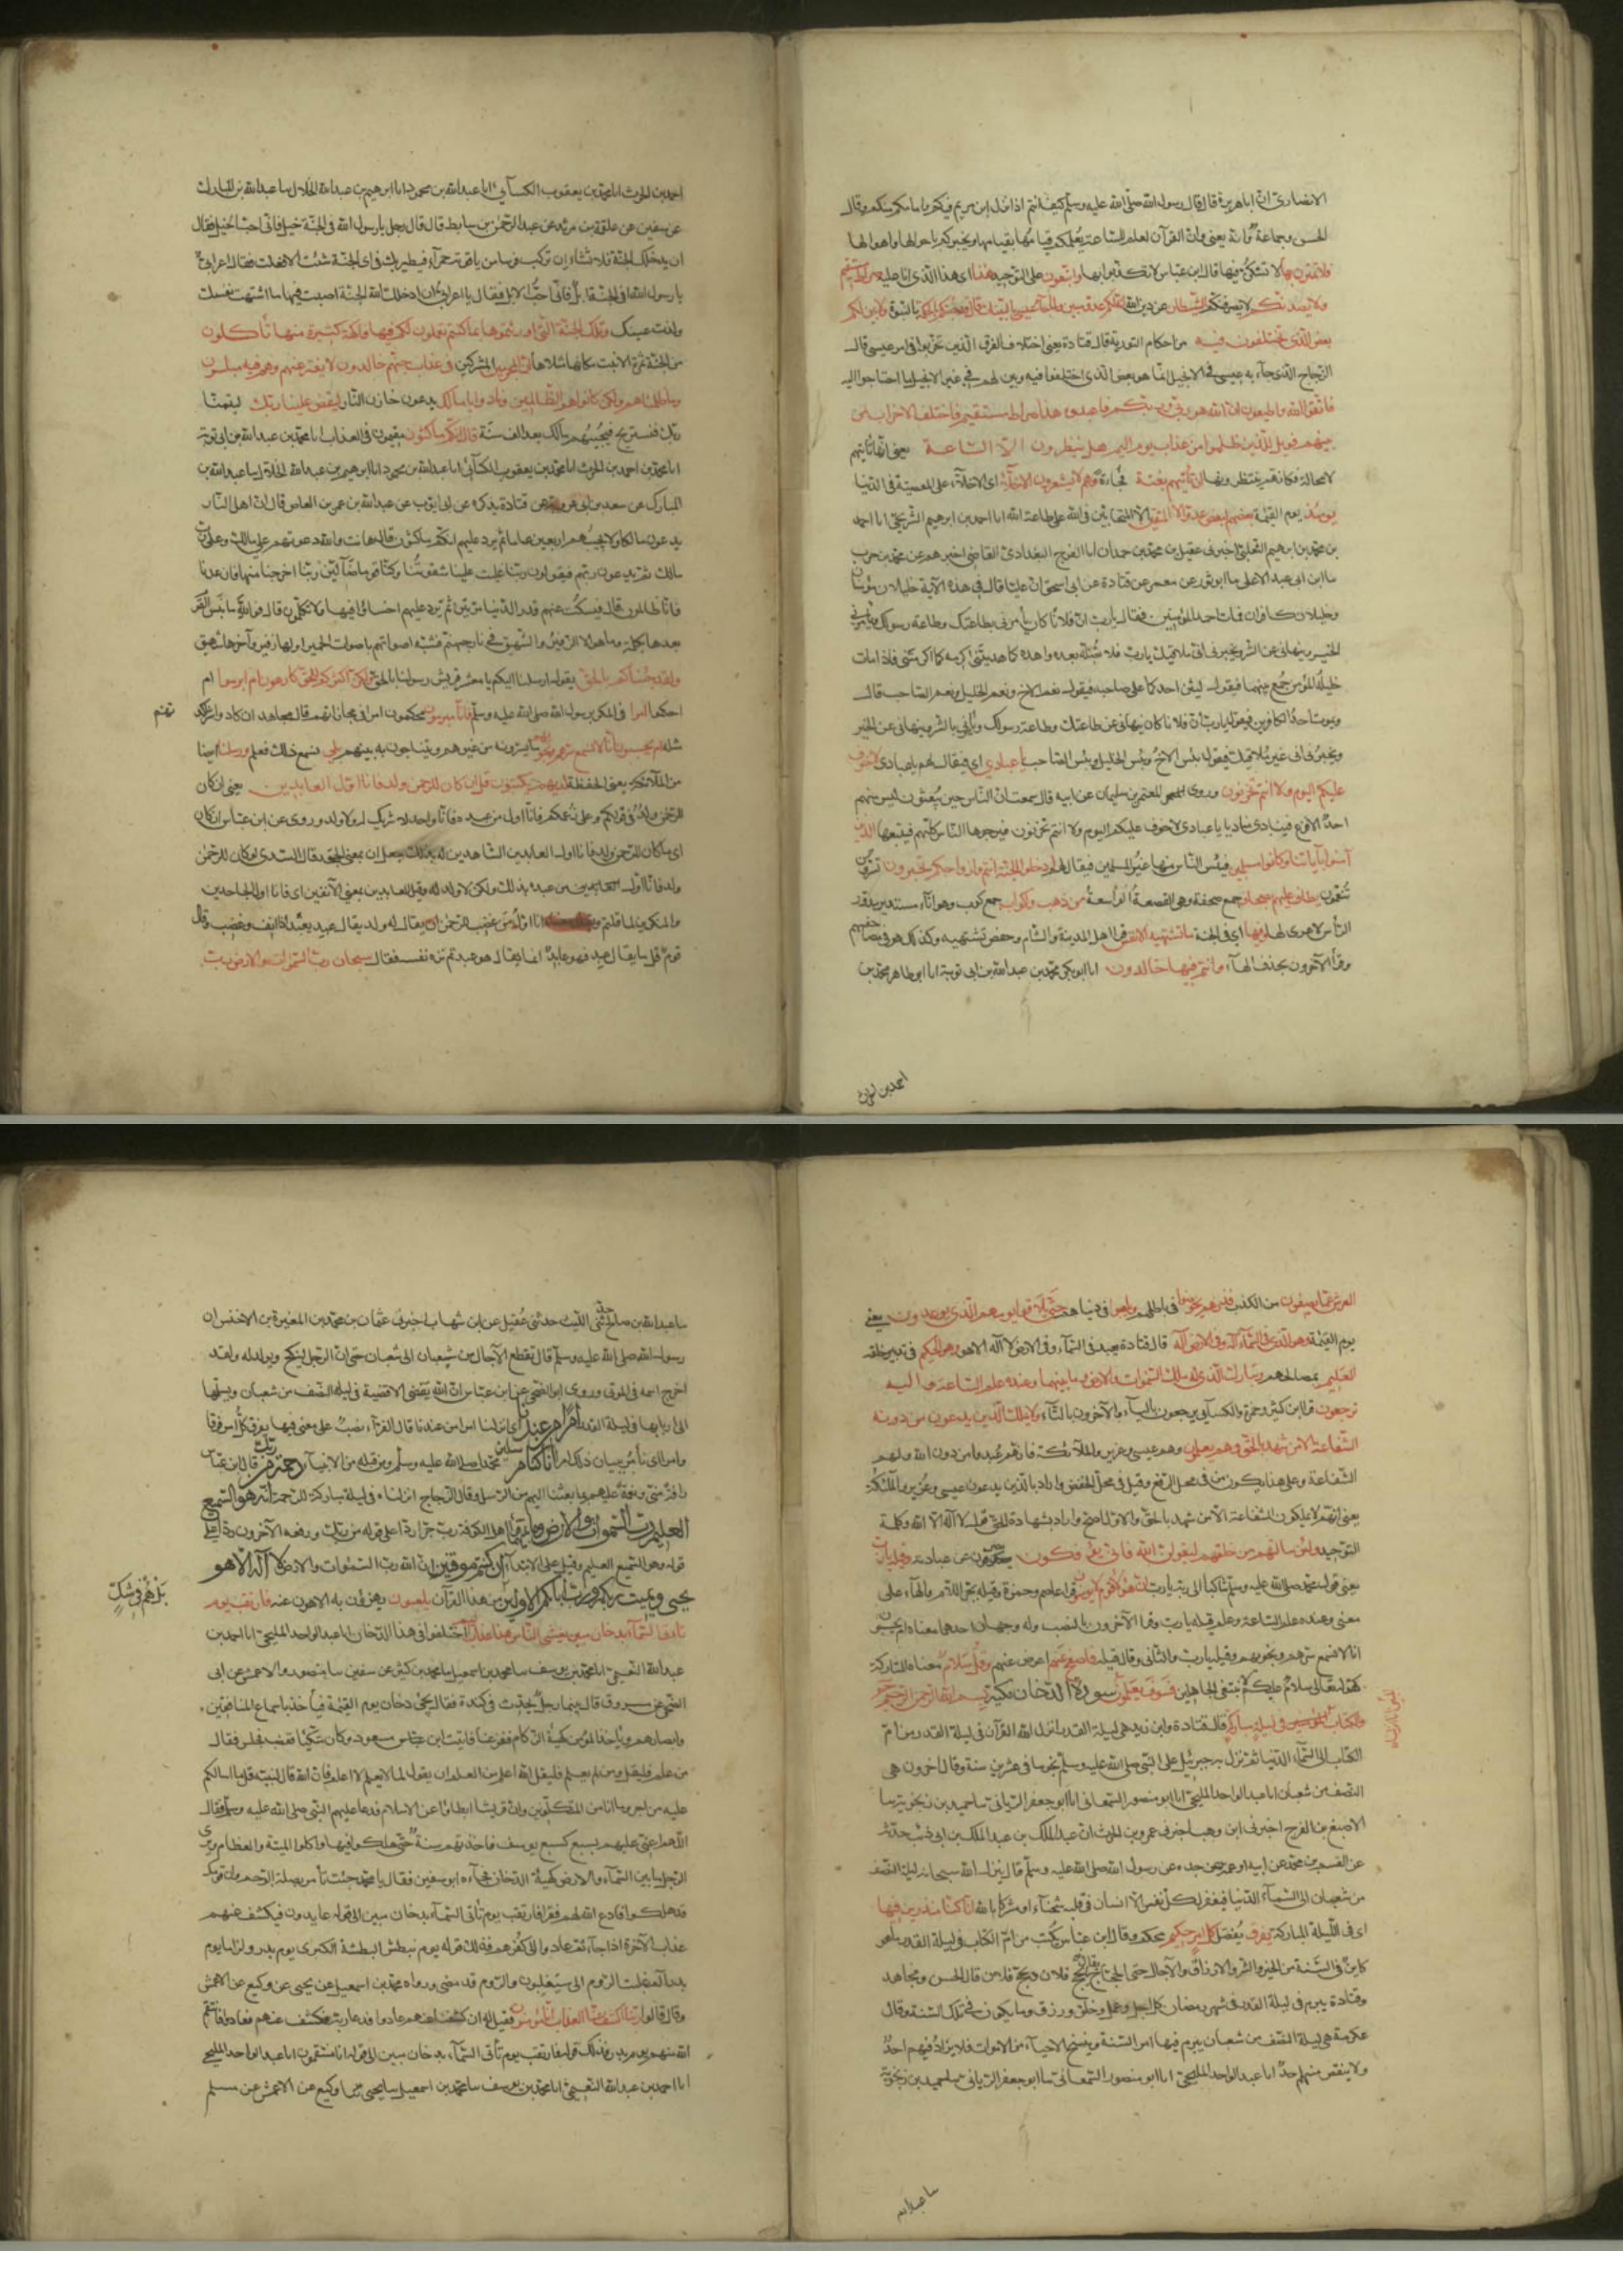 الانصارى انّ اباهريرة قال قال رسول الله صلّى الله عليه وسلّم كيف انتم اذا نزل ابن مريم فيكم وامامكم منكم وقال
الحسن وجماعة وانه يعنى وانّ القرآن لعلم للساعة يعلمكم قيامها ويخبركم باحوالها واهوالها
فلا تمترنّ بها لا تشكّنّ فيها قال ابن عباس لا تكذبوا بها واتبعون على التوحيد هذا اى هذا الذى انا عليه صراط مستقيم
ولا يصدنكم لا يصرفنكم الشيطان عن دين الله انه لكم عدو مبين ولما جاء عيسى بالبينات قال قد جئتكم بالحكمة بالنبوة ولابين لكم
بعض الذى تختلفون فيه من احكام التورية قال قتادة يعنى اختلاف الفرق الذين تحزبوا فى امر عيسى قال
الزجاج الذى جاء به عيسى فى الانجيل انما هو بعض الذى اختلفوا فيه وبين لهم فى غير الانجيل ما احتاجوا اليه
فاتقوا الله واطيعون انّ الله هو ربّى وربّكم فاعبدوه هذا صراط مستقيم فاختلف الاحزاب من
بينهم فويل للذين ظلموا من عذاب يوم اليم هل ينظرون الّا الساعة يعنى انها تاتيهم
لا محالة فكانهم ينتظرونها ان تأتيهم بغتة فجاءة وهم لا يشعرون الاخلّاء اى الاخلّاء على المعصية فى الدنيا
يومئذ يوم القيمة بعضهم لبعض عدو الّا المتقين الّا المتحابين فى الله على طاعة الله انا احمد بن ابرهيم الشريحى انا احمد
بن محمد بن ابرهيم الثعلبى اخبرنى عقيل بن محمد بن حمدان انا ابو الفرج البغدادى القاضى اخبرهم عن محمد بن جرير
نا ابن عبد الاعلى نا ابو ثور عن معمر عن قتادة عن ابى اسحق انّ عليّا قال فى هذه الآية خليلان مؤمنان
وخليلان كافران فمات احد المؤمنين فقال يا ربّ انّ فلانا كان يأمرنى بطاعتك وطاعة رسولك ويأمرنى
بالخير وينهانى عن الشر ويخبرنى انّى ملاقيك يا ربّ فلا تضلّه بعدى واهده كما هديتنى واكرمه كما اكرمتنى فاذا مات
خليله المؤمن جمع بينهما فيقول ليثن احدكما على صاحبه فيقول نعم الاخ ونعم الخليل ونعم الصاحب قال
ويموت احد الكافرين فيقول يا ربّ انّ فلانا كان ينهانى عن طاعتك وطاعة رسولك ويأمرنى بالشر وينهانى عن الخير
ويخبرنى انى غير ملاقيك فيقول بئس الاخ وبئس الخليل وبئس الصاحب يا عبادى اى فيقال لهم يا عبادى لا خوف
عليكم اليوم ولا انتم تحزنون وروى المعتمر بن سليمان عن ابيه قال سمعت انّ الناس حين يبعثون ليس منهم
احد الّا فزع فينادى مناد يا عبادى لا خوف عليكم اليوم ولا انتم تحزنون فيرجوها الناس كلهم فيتبعها الذين
آمنوا بآياتنا وكانوا مسلمين فيئس الناس منها غير المسلمين فيقال لهم ادخلوا الجنة انتم وازواجكم تحبرون تسرّون
تنعمون يطاف عليهم بصحاف جمع صحفة وهى القصعة الواسعة من ذهب واكواب جمع كوب وهو اناء مستدير مدوّر
الرأس لا عرى لها وفيها اى فى الجنة ما تشتهيه الانفس قرا اهل المدينة والشام وحفص تشتهيه وكذلك هو فى مصاحفهم
وقرأ الآخرون بحذف الهاء وانتم فيها خالدون انا ابو بكر محمد بن عبدالله بن ابى توبة انا ابو طاهر محمد بن
احمد بن الحرث
احمد بن الحرث انا محمد بن يعقوب الكسآئى انا عبدالله بن محمود انا ابرهيم بن عبدالله الخلال نا عبدالله بن المبارك
عن سفين عن علقمة بن مرثد عن عبد الرحمن بن سابط قال قال رجل يا رسول الله فى الجنة خيل فانّى احبّ الخيل فقال
ان يدخلك الله الجنة فلا تشاء ان تركب فرسا من ياقوتة حمرآء فيطير بك فى اىّ الجنة شئت الّا فعلت فقال اعرابىّ
يا رسول الله افى الجنة ابل فانّى احبّ الابل فقال يا اعرابى ان ادخلك الله الجنة اصبت فيها ما اشتهت نفسك
ولذّت عينك وتلك الجنة الّتى اورثتموها بما كنتم تعملون لكم فيها فاكهة كثيرة منها تأكلون
من الجنة ثمرة الّا نبت مكانها مثلاها انّ المجرمين المشركين فى عذاب جهنم خالدون لا يفتّر عنهم وهم فيه مبلسون
وما ظلمناهم ولكن كانوا هم الظالمين ونادوا يا مالك يدعون خازن النار ليقض علينا ربّك ليمتنا
ربّك فنستريح فيجيبهم مالك بعد الف سنة قال انّكم ماكثون مقيمون فى العذاب انا محمد بن عبدالله بن ابى توبة
انا محمد بن احمد بن الحرث انا محمد بن يعقوب الكسآئى انا عبدالله بن محمود انا ابرهيم بن عبدالله الخلال نا عبدالله بن
المبارك عن سعيد بن ابى عروبة عن قتادة يذكره عن ابى ايوب عن عبدالله بن عمرو بن العاص قال انّ اهل النار
يدعون مالكا ولا يجيبهم اربعين عاما ثم يردّ عليهم انكم ماكثون قال هانت والله دعوتهم على مالك وعلى ربّ
مالك ثم يدعون ربّهم فيقولون ربّنا غلبت علينا شقوتنا وكنّا قوما ضآلّين ربّنا اخرجنا منها فان عدنا
فانّا ظالمون قال فيسكت عنهم قدر الدنيا مرّتين ثم يردّ عليهم اخسئوا فيها ولا تكلّمون قال فوالله ما نبس القوم
بعدها بكلمة وما هو الّا الزفير والشهيق فى نار جهنم فشبّه اصواتهم باصوات الحمير اولها زفير وآخرها شهيق
ولقد جئناكم بالحقّ يقول ارسلنا اليكم يا معشر قريش رسولنا بالحقّ ولكنّ اكثركم للحقّ كارهون ام ابرموا ام
احكموا امرا فى المكر برسول الله صلى الله عليه وسلّم فانّا مبرمون محكمون امرا فى مجازاتهم قال مجاهد ان كادوا شرّا كدتهم
مثله ام يحسبون انّا لا نسمع سرّهم ونجواهم ما يسرّونه من غيرهم ويتناجون به بينهم بلى نسمع ذلك ونعلم ورسلنا ايضا
من الملآئكة يعنى الحفظة لديهم يكتبون قل ان كان للرحمن ولد فانا اوّل العابدين يعنى ان كان
للرحمن ولد فى قولكم وعلى زعمكم فانا اول من عبده فانّه واحد لا شريك له ولا ولد وروى عن ابن عباس ان كان
اى ما كان للرحمن ولد فانا اول العابدين الشاهدين له بذلك جعل ان بمعنى الجحد وقال السدى لو كان للرحمن
ولد فانا اوّل العابدين من عبده بذلك ولكن لا ولد له وقيل العابدين بمعنى الآنفين اى فانا اول الجاحدين
والمنكرين لما قلتم انا اوّل من غضب للرحمن ان يقال له ولد يقال عبد يعبد اذا انف وغضب وقال
قوم قل ما يقال عبد فهو عابد انما يقال هو عبد ثم نزّه نفسه فقال سبحان ربّ السموات والارض ربّ
العرش عمّا يصفون من الكذب فذرهم يخوضوا فى باطلهم ويلعبوا فى دنياهم حتّى يلاقوا يومهم الّذى يوعدون يعنى
يوم القيمة وهو الّذى فى السمآء اله وفى الارض اله قال قتادة يعبد فى السمآء وفى الارض لا اله الّا هو وهو الحكيم فى تدبير خلقه
العليم بمصالحهم وتبارك الّذى له ملك السموات والارض وما بينهما وعنده علم الساعة واليه
ترجعون قرا ابن كثير وحمزة والكسآيى يرجعون باليآء والآخرون بالتآء ولا يملك الّذين يدعون من دونه
الشفاعة الّا من شهد بالحقّ وهم يعلمون وهم عيسى وعزير والملآئكة فانهم عبدوا من دون الله ولهم
الشفاعة وعلى هذا يكون من فى محل الرفع وقيل فى محلّ الخفض واراد بالذين يدعون عيسى وعزير والملآئكة
يعنى انهم لا يملكون الشفاعة الّا من شهد بالحقّ والاول اصحّ واراد بشهادة الحق قول لا اله الّا الله وكلمة
التوحيد ولئن سالتهم من خلقهم ليقولنّ الله فانّى يؤفكون يصرفون عن عبادته وقيله يا ربّ
يعنى قول محمد صلى الله عليه وسلّم شاكيا الى ربه يا ربّ انّ هؤلاء قوم لا يؤمنون قرا عاصم وحمزة وقيله بجرّ اللام والهاء على
معنى وعنده علم الساعة وعلم قيله يا ربّ وقرا الآخرون بالنصب وله وجهان احدهما معناه ام يحسبون
انّا لا نسمع سرّهم ونجواهم وقيله يا ربّ والثانى وقال قيله فاصفح عنهم اعرض عنهم وقل سلام معناه المتاركة
كقوله تعالى سلام عليكم لا نبتغى الجاهلين فسوف يعلمون سورة الدخان مكية بسم الله الرحمن الرحيم حم
والكتاب المبين انا انزلناه فى ليلة مباركة قال قتادة وابن زيد هى ليلة القدر انزل الله القرآن فى ليلة القدر من امّ
الكتاب الى السمآء الدنيا ثم نزل به جبرئيل على النبى صلى الله عليه وسلّم نجوما فى عشرين سنة وقال آخرون هى
النصف من شعبان انا عبد الواحد المليحى انا ابو منصور السمعانى انا ابو جعفر الريانى نا حميد بن زنجوية نا
الاصبغ بن الفرج اخبرنى ابن وهب اخبرنى عمرو بن الحرث انّ عبد الملك بن عبد الملك بن ابى ذئب حدثه
عن القسم بن محمد عن ابيه او عمه عن جده عن رسول الله صلى الله عليه وسلّم قال ينزل الله سبحانه ليلة النصف
من شعبان الى السمآء الدنيا فيغفر لكلّ نفس الّا انسان فى قلبه شحنآء او شركا بالله انّا كنّا منذرين فيها
اى فى الليلة المباركة يفرق يفصل كل امر حكيم محكم وقال ابن عباس يكتب من امّ الكتاب فى ليلة القدر ما هو
كاين فى السنة من الخير والشر والارزاق والآجال حتى الحجاج يقال يحج فلان ويحج فلان قال الحسن ومجاهد
وقتادة يبرم فى ليلة القدر فى شهر رمضان كل اجل وعمل وخلق ورزق وما يكون فى تلك السنة وقال
عكرمة هى ليلة النصف من شعبان يبرم فيها امر السنة وينسخ الاحيآء من الاموات فلا يزاد فيهم احد
ولا ينقص منهم احد انا عبد الواحد المليحى انا ابو منصور السمعانى نا ابو جعفر الريانى نا حميد بن زنجوية
نا عبدالله
نا عبدالله بن صالح حدّثنى الليث حدثنى عقيل عن ابن شهاب اخبرنى عثمان بن محمد بن المغيرة بن الاخنس ان
رسول الله صلى الله عليه وسلّم قال تقطع الآجال من شعبان الى شعبان حتى انّ الرجل لينكح ويولد له ولقد
اخرج اسمه فى الموتى وروى ابو الضحى عن ابن عباس انّ الله يقضى الاقضية فى ليلة النصف من شعبان ويسلّمها
الى اربابها فى ليلة القدر امرا من عندنا اى انزلنا امرا من عندنا قال الفرآء نصب على معنى فيها يفرق كل امر فرقا
وامرا اى نأمر ببيان ذلك امرا انا كنا مرسلين محمدا صلى الله عليه وسلّم ومن قبله من الانبيآء رحمة من ربك قال ابن عباس
رافة منّى ونعمة عليهم بما بعثنا اليهم من الرسل وقال الزجاج انزلناه فى ليلة مباركة للرحمة انه هو السميع
العليم رب السموات والارض وما بينهما قرا اهل الكوفة ربّ جرّا ردّا على قوله من ربّك ورفعه الآخرون ردّا على
قوله وهو السميع العليم وقيل على الابتدآء ان كنتم موقنين انّ الله ربّ السموات والارض لا اله الا هو
يحيى ويميت ربكم ورب ابائكم الاولين بل هم فى شك من هذا القرآن يلعبون يهزؤن به لاهون عنه فارتقب يوم
تأتى السمآء بدخان مبين يغشى الناس هذا عذاب اليم اختلفوا فى هذا الدخان انا عبد الواحد المليحى انا احمد بن
عبدالله النعيمى انا محمد بن يوسف نا محمد بن اسمعيل نا محمد بن كثير عن سفين نا منصور والاعمش عن ابى
الضحى عن مسروق قال بينما رجل يحدّث فى كندة فقال يجئ دخان يوم القيمة فيأخذ باسماع المنافقين
وابصارهم ويأخذ المؤمن كهيئة الزكام ففزعنا فاتيت ابن مسعود وكان متكئا فغضب فجلس فقال
من علم فليقل ومن لم يعلم فليقل الله اعلم فانّ من العلم ان يقول لما لا يعلم لا اعلم فانّ الله قال لنبيه قل ما اسالكم
عليه من اجر وما انا من المتكلّفين وانّ قريشا ابطاوا عن الاسلام فدعا عليهم النبى صلى الله عليه وسلّم فقال
اللّهم اعنّى عليهم بسبع كسبع يوسف فاخذتهم سنة حتّى هلكوا فيها واكلوا الميتة والعظام ويرى
الرجل ما بين السمآء والارض كهيئة الدخان فجآءه ابو سفين فقال يا محمد جئت تأمر بصلة الرحم وانّ قومك
قد هلكوا فادع الله لهم فقرا فارتقب يوم تأتى السمآء بدخان مبين الى قوله عايدون فيكشف عنهم
عذاب الآخرة اذا جآء ثم عادوا الى كفرهم فذلك قوله يوم نبطش البطشة الكبرى يوم بدر ولزاما يوم
بدر الم غلبت الروم الى سيغلبون والروم قد مضى ورواه محمد بن اسمعيل عن يحيى عن وكيع عن الاعمش
وقال قالوا ربّنا اكشف عنّا العذاب انّا مؤمنون فقيل له ان كشفنا عنهم عادوا فدعا ربّه فكشف عنهم فعادوا فانتقم
الله منهم يوم بدر فذلك قوله فارتقب يوم تأتى السمآء بدخان مبين الى قوله انا منتقمون انا عبد الواحد المليحى
انا احمد بن عبدالله النعيمى انا محمد بن يوسف نا محمد بن اسمعيل نا يحيى نا وكيع عن الاعمش عن مسلم
بل هم فى شكّ